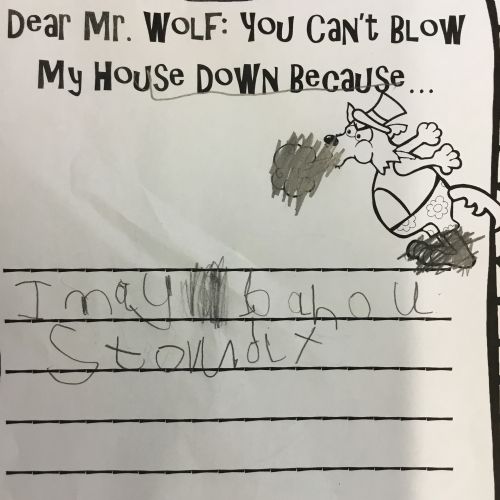 Dear Mr. Wolf: You Can't Blow
My House Down Because...
I may b a hou